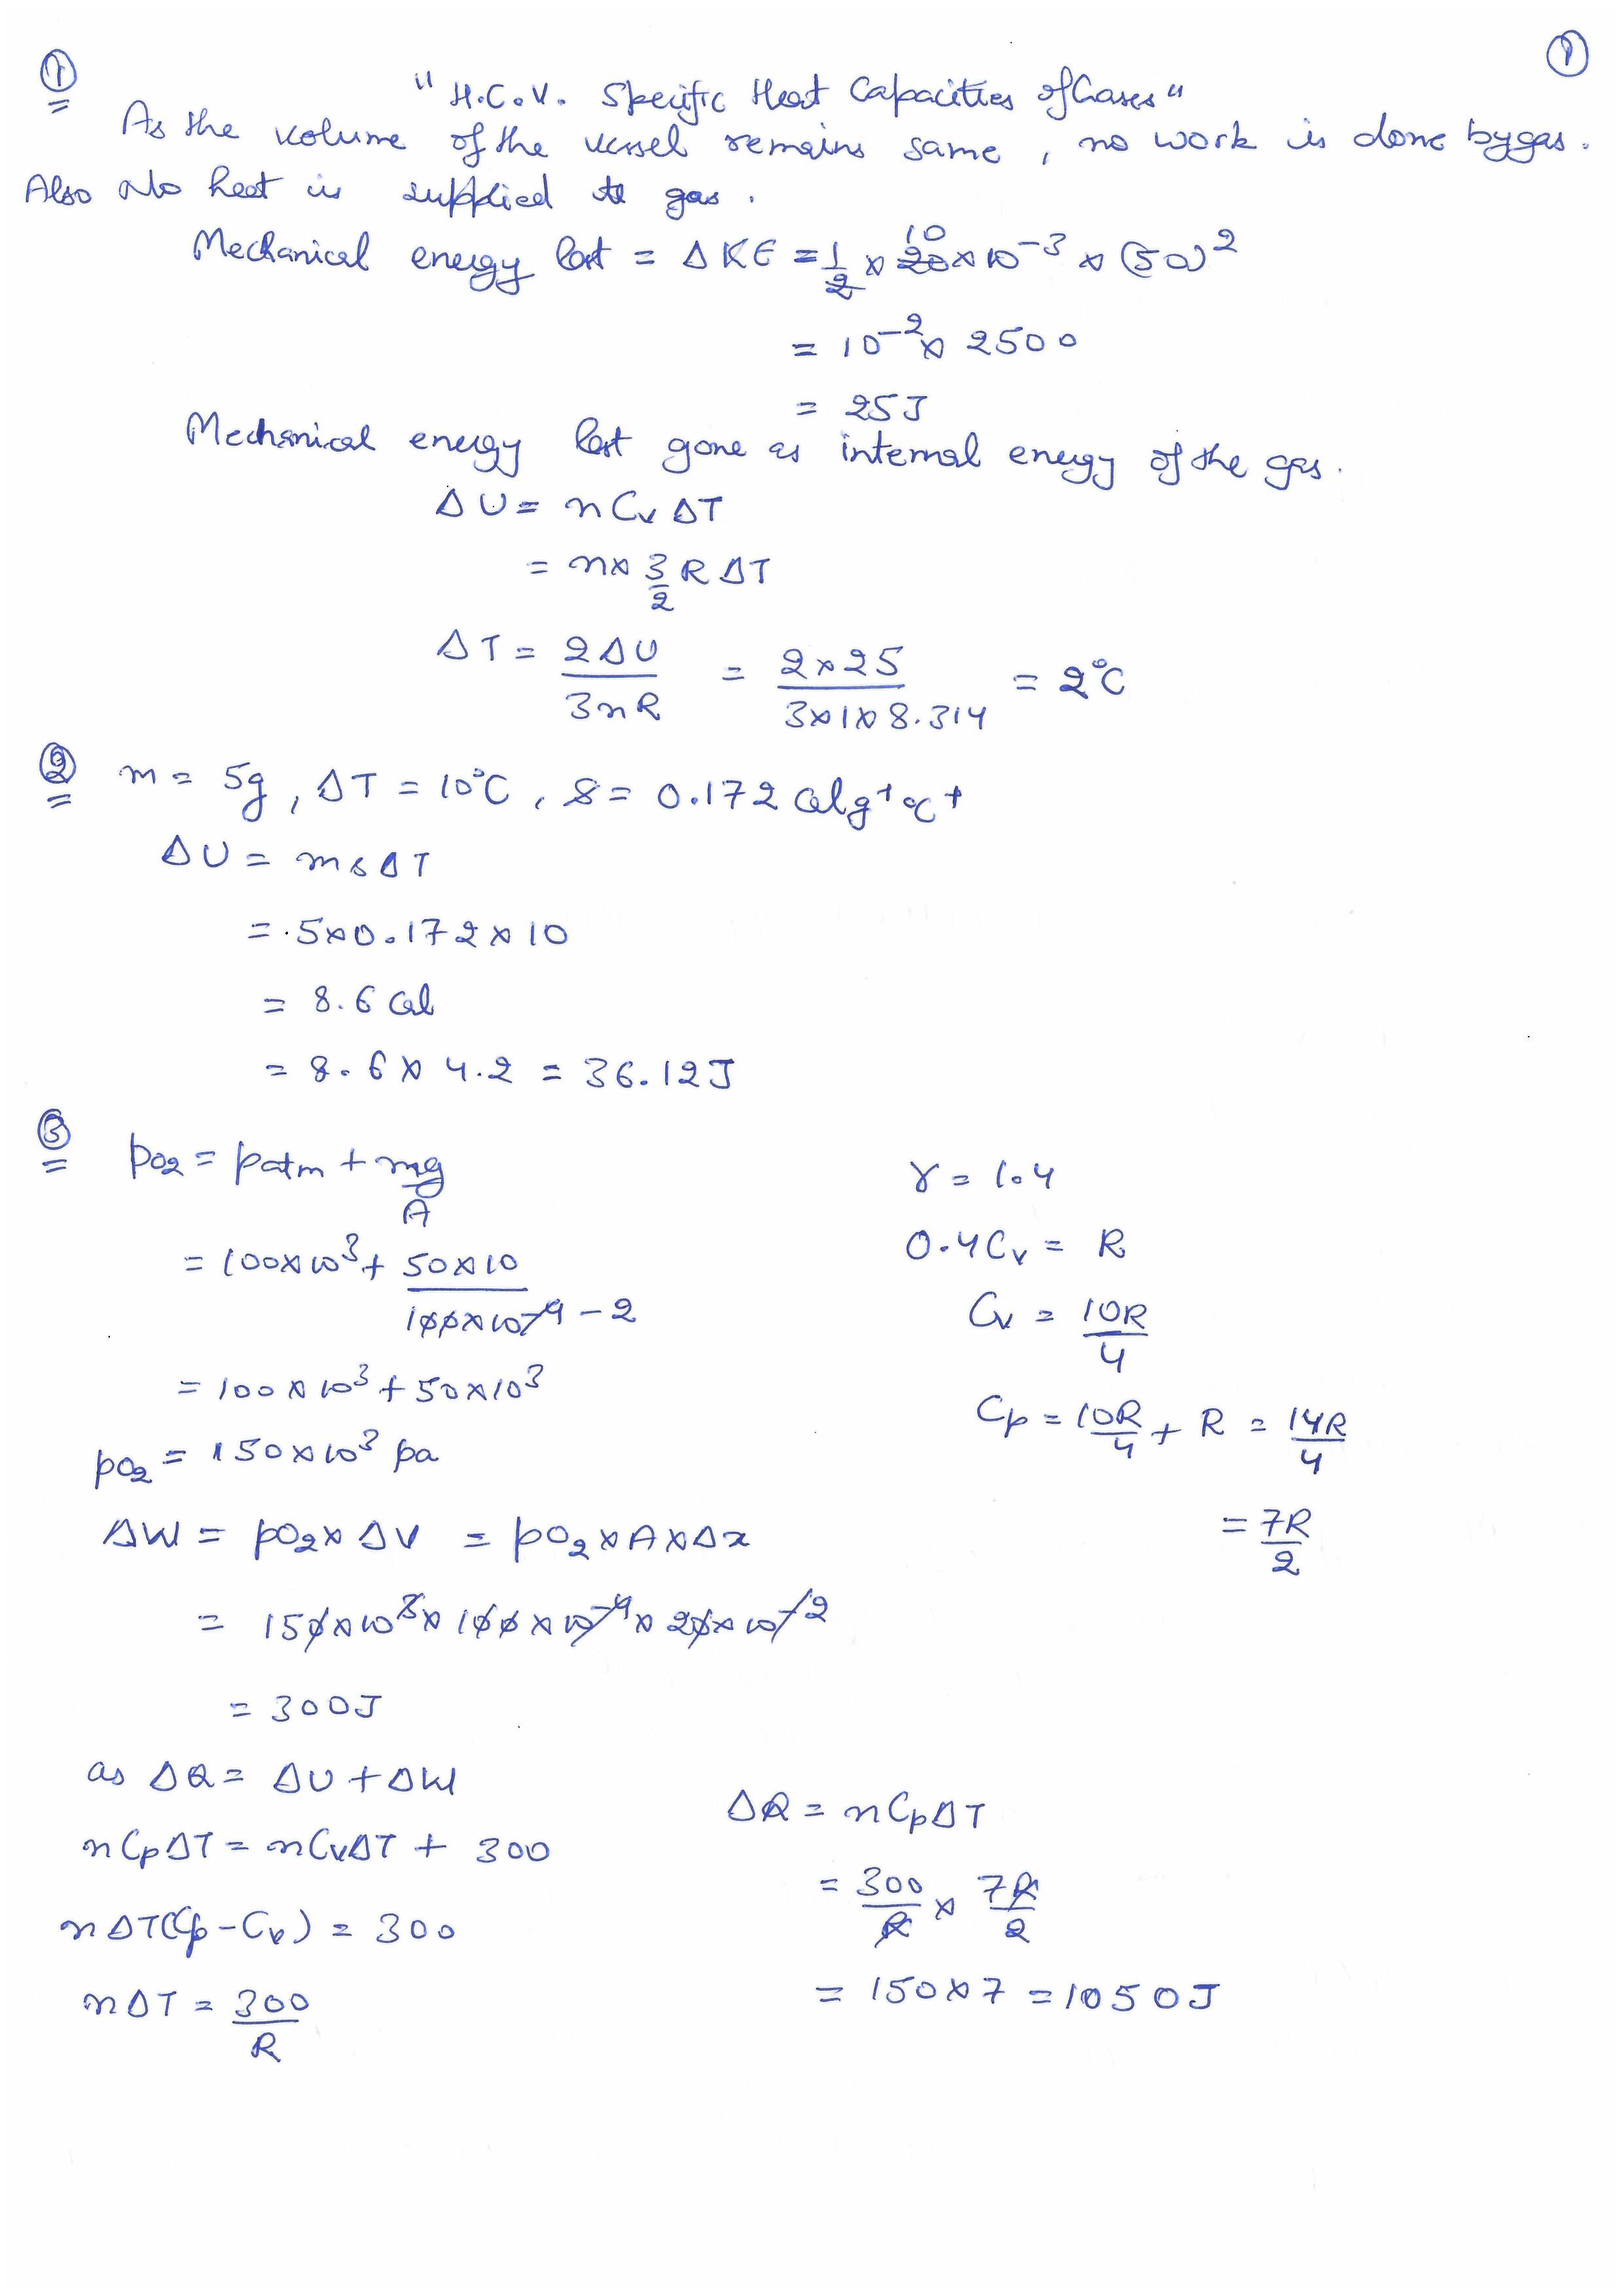 ① ①
"H.C.V. Specific Heat Capacities of Gases"
As the volume of the vessel remains same, no work is done by gas.
Also No heat is supplied to gas.
Mechanical energy lost = ΔKE = 1/2 × 20 10 × 10⁻³ × (50)²
= 10⁻² × 2500
= 25J
Mechanical energy lost gone as internal energy of the gas.
ΔU = nCvΔT
= n × 3/2 RΔT
ΔT = 2ΔU/3nR = 2×25/3×1×8.314 = 2°C
② m = 5g, ΔT = 10°C, s = 0.172 Cal g⁻¹ °C⁻¹
ΔU = msΔT
= 5×0.172×10
= 8.6 Cal
= 8.6 × 4.2 = 36.12J
③ pO2 = patm + mg/A
= 100×10³ + 50×10/100×10⁻⁴ -2
= 100×10³ + 50×10³
pO2 = 150×10³ pa
ΔW = pO2×ΔV = pO2×A×Δx
= 150×10³×100×10⁻⁴×20×10⁻²
= 300J
as ΔQ = ΔU + ΔW
nCpΔT = nCvΔT + 300
nΔT(Cp-Cv) = 300
nΔT = 300/R
γ = 1.4
0.4Cv = R
Cv = 10R/4
Cp = 10R/4 + R = 14R/4
= 7R/2
ΔQ = nCpΔT
= 300/R × 7R/2
= 150×7 = 1050J